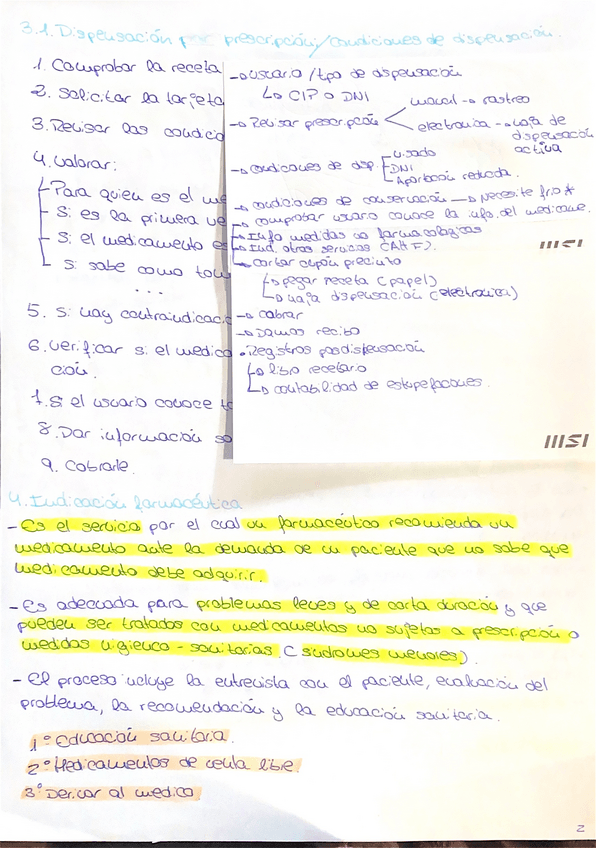 3.1. Dispensación por prescripción/condiciones de dispensación.
1. Comprobar la receta
2. Solicitar la tarjeta
3. Revisar las condici
4. Valorar:
Para quien es el me
Si es la primera ve
Si el medicamento es
Si sabe como tom
...
5. Si hay contraindicaci
6. Verificar si el medica
ción.
7. Si el usuario conoce t
8. Dar información so
9. Cobrarle.
→ Usuario / tipo de dispensación
↳ CIP o DNI
→ Revisar prescripción
manual → rastreo
electronica → hoja de
dispensación
activa
→ condiciones de disp.
visado
DNI
Aportación reducida.
→ condiciones de conservación → Necesite frio *
→ comprobar usuario conoce la info. del medicame.
→ Info medidas no farmacologicas
→ Ind. otros servicios (AHF).
→ cortar cupón precinto
↳ pegar receta (papel)
↳ hoja dispensación (electronica)
→ cobrar
→ Damos recibo
• Registros posdispensación
↳ libro recetario
↳ contabilidad de estupefacciones.
msi
msi
4. Indicación farmacéutica
- Es el servicio por el cual un farmacéutico recomienda un
medicamento ante la demanda de un paciente que no sabe que
medicamento debe adquirir.
- Es adecuada para problemas leves y de corta duración y que
pueden ser tratados con medicamentos no sujetos a prescripción o
medidas higienco - sanitarias. (síndromes menores)
- El proceso incluye la entrevista con el paciente, evaluación del
problema, la recomendación y la educación sanitaria.
1º Educación sanitaria.
2º Medicamentos de venta libre.
3º Derivar al medico
2